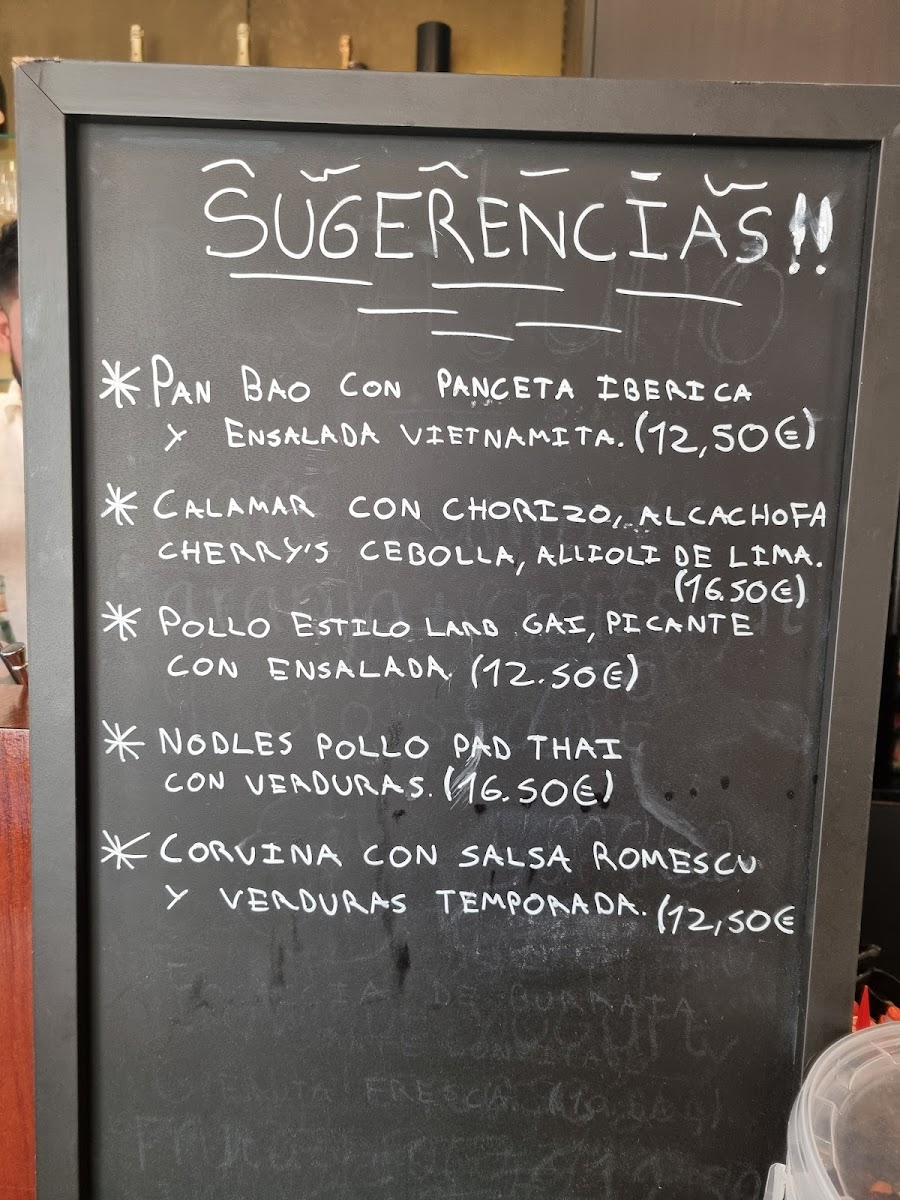 SUGERENCIAS!!
* PAN BAO CON PANCETA IBERICA
Y ENSALADA VIETNAMITA. (12,50€)
* CALAMAR CON CHORIZO, ALCACHOFA
CHERRY'S CEBOLLA, ALLIOLI DE LIMA.
(16.50€)
* POLLO ESTILO LARB GAI, PICANTE
CON ENSALADA. (12.50€)
* NODLES POLLO PAD THAI
CON VERDURAS. (16.50€)
* CORVINA CON SALSA ROMESCU
Y VERDURAS TEMPORADA. (12,50€
DE BURRATA
FRESCA.